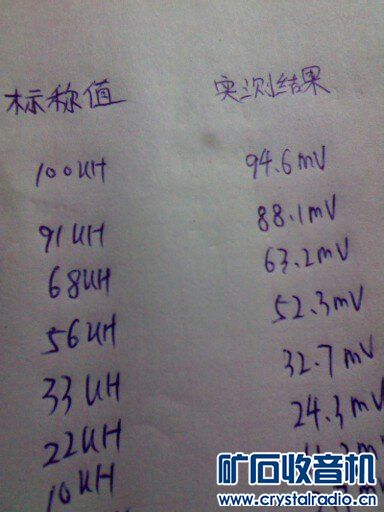 标称值 实测结果
100UH 94.6mV
91UH 88.1mV
68UH 63.2mV
56UH 52.3mV
33UH 32.7mV
22UH 24.3mV
10UH
矿石收音机
www.crystalradio.cn